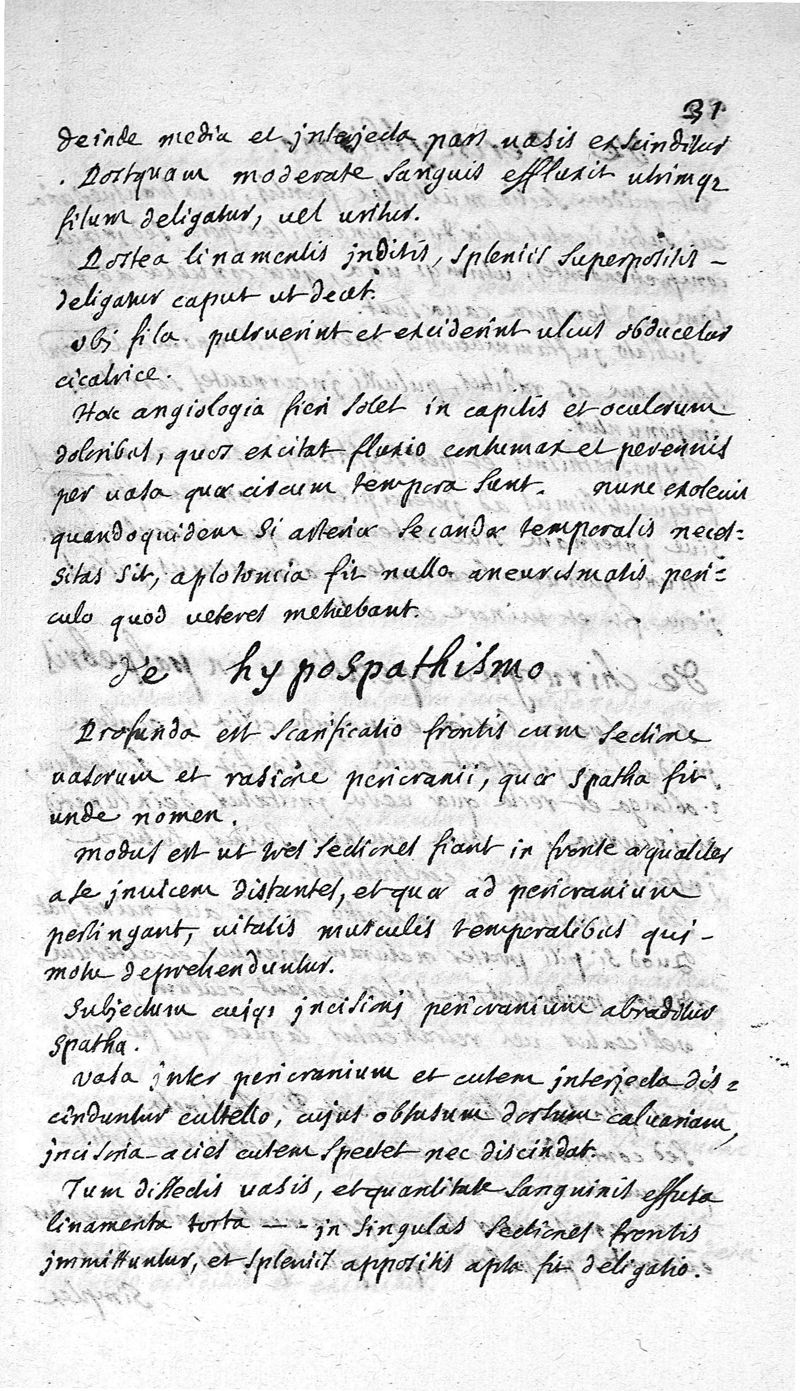 31
deinde media et interjecta pars vasis exscinditur
. Postquam moderate sanguis effluxit utrimqz
filum deligatur, vel uritur.
Postea linamentis jnditis, spleniis superpositis -
deligatur caput ut decet.
ubj fila putruerint et exciderint ulcus obducetur
cicatrice.
Hac angiologia fieri solet in capitis et oculorum
doloribus, quos excitat fluxio contumax et perennis
per vasa quæ circum tempora sunt. nunc exolevit
quandoquidem si arteriæ secandæ temporalis neces=
sitas sit, aplotoncia fit nullo aneurismatis peri=
culo quod veteres metuebant.
de hypospathismo
Profunda est scarificatio frontis cum sectione
vasorum et rasione pericranii, quæ spatha fit
unde nomen.
modus est ut tres sectiones fiant in fronte æqualiter
a se jnvicem distantes, et quæ ad pericranium
pertingant, vitatis musculis temporalibus qui -
motu deprehenduntur.
Subjectum cujqz jncisionj pericranium abraditur
spatha.
vasa jnter pericranium et cutem jnterjecta dis=
cinduntur cultello, cujus obtusum dorsum calvariam,
jncisoria acies cutem spectet nec discindat.
Tum dissectis vasis, et quantitate sanguinis effusa
linamenta torta -- jn singulas sectiones frontis
jmmittuntur, et spleniis appositis apta fit deligatio.